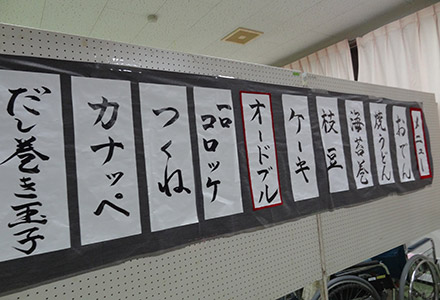 メニュー
おでん
焼うどん
海苔巻
枝豆
ケーキ
オードブル
一口コロッケ
つくね
カナッペ
だし巻き玉子